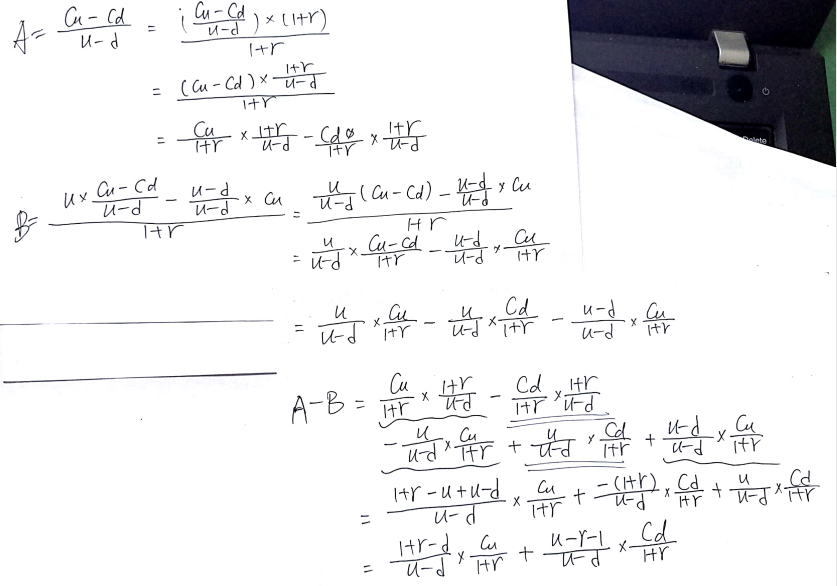 A = \frac{Cu-Cd}{u-d} = \frac{(\frac{Cu-Cd}{u-d}) \times (1+r)}{1+r}
= \frac{(Cu-Cd) \times \frac{1+r}{u-d}}{1+r}
= \frac{Cu}{1+r} \times \frac{1+r}{u-d} - \frac{Cd}{1+r} \times \frac{1+r}{u-d}
B = \frac{u \times \frac{Cu-Cd}{u-d} - \frac{u-d}{u-d} \times Cu}{1+r} = \frac{\frac{u}{u-d}(Cu-Cd) - \frac{u-d}{u-d} \times Cu}{1+r}
= \frac{u}{u-d} \times \frac{Cu-Cd}{1+r} - \frac{u-d}{u-d} \times \frac{Cu}{1+r}
= \frac{u}{u-d} \times \frac{Cu}{1+r} - \frac{u}{u-d} \times \frac{Cd}{1+r} - \frac{u-d}{u-d} \times \frac{Cu}{1+r}
A-B = \frac{Cu}{1+r} \times \frac{1+r}{u-d} - \frac{Cd}{1+r} \times \frac{1+r}{u-d}
- \frac{u}{u-d} \times \frac{Cu}{1+r} + \frac{u}{u-d} \times \frac{Cd}{1+r} + \frac{u-d}{u-d} \times \frac{Cu}{1+r}
= \frac{1+r-u+u-d}{u-d} \times \frac{Cu}{1+r} + \frac{-(1+r)}{u-d} \times \frac{Cd}{1+r} + \frac{u}{u-d} \times \frac{Cd}{1+r}
= \frac{1+r-d}{u-d} \times \frac{Cu}{1+r} + \frac{u-r-1}{u-d} \times \frac{Cd}{1+r}
Delete